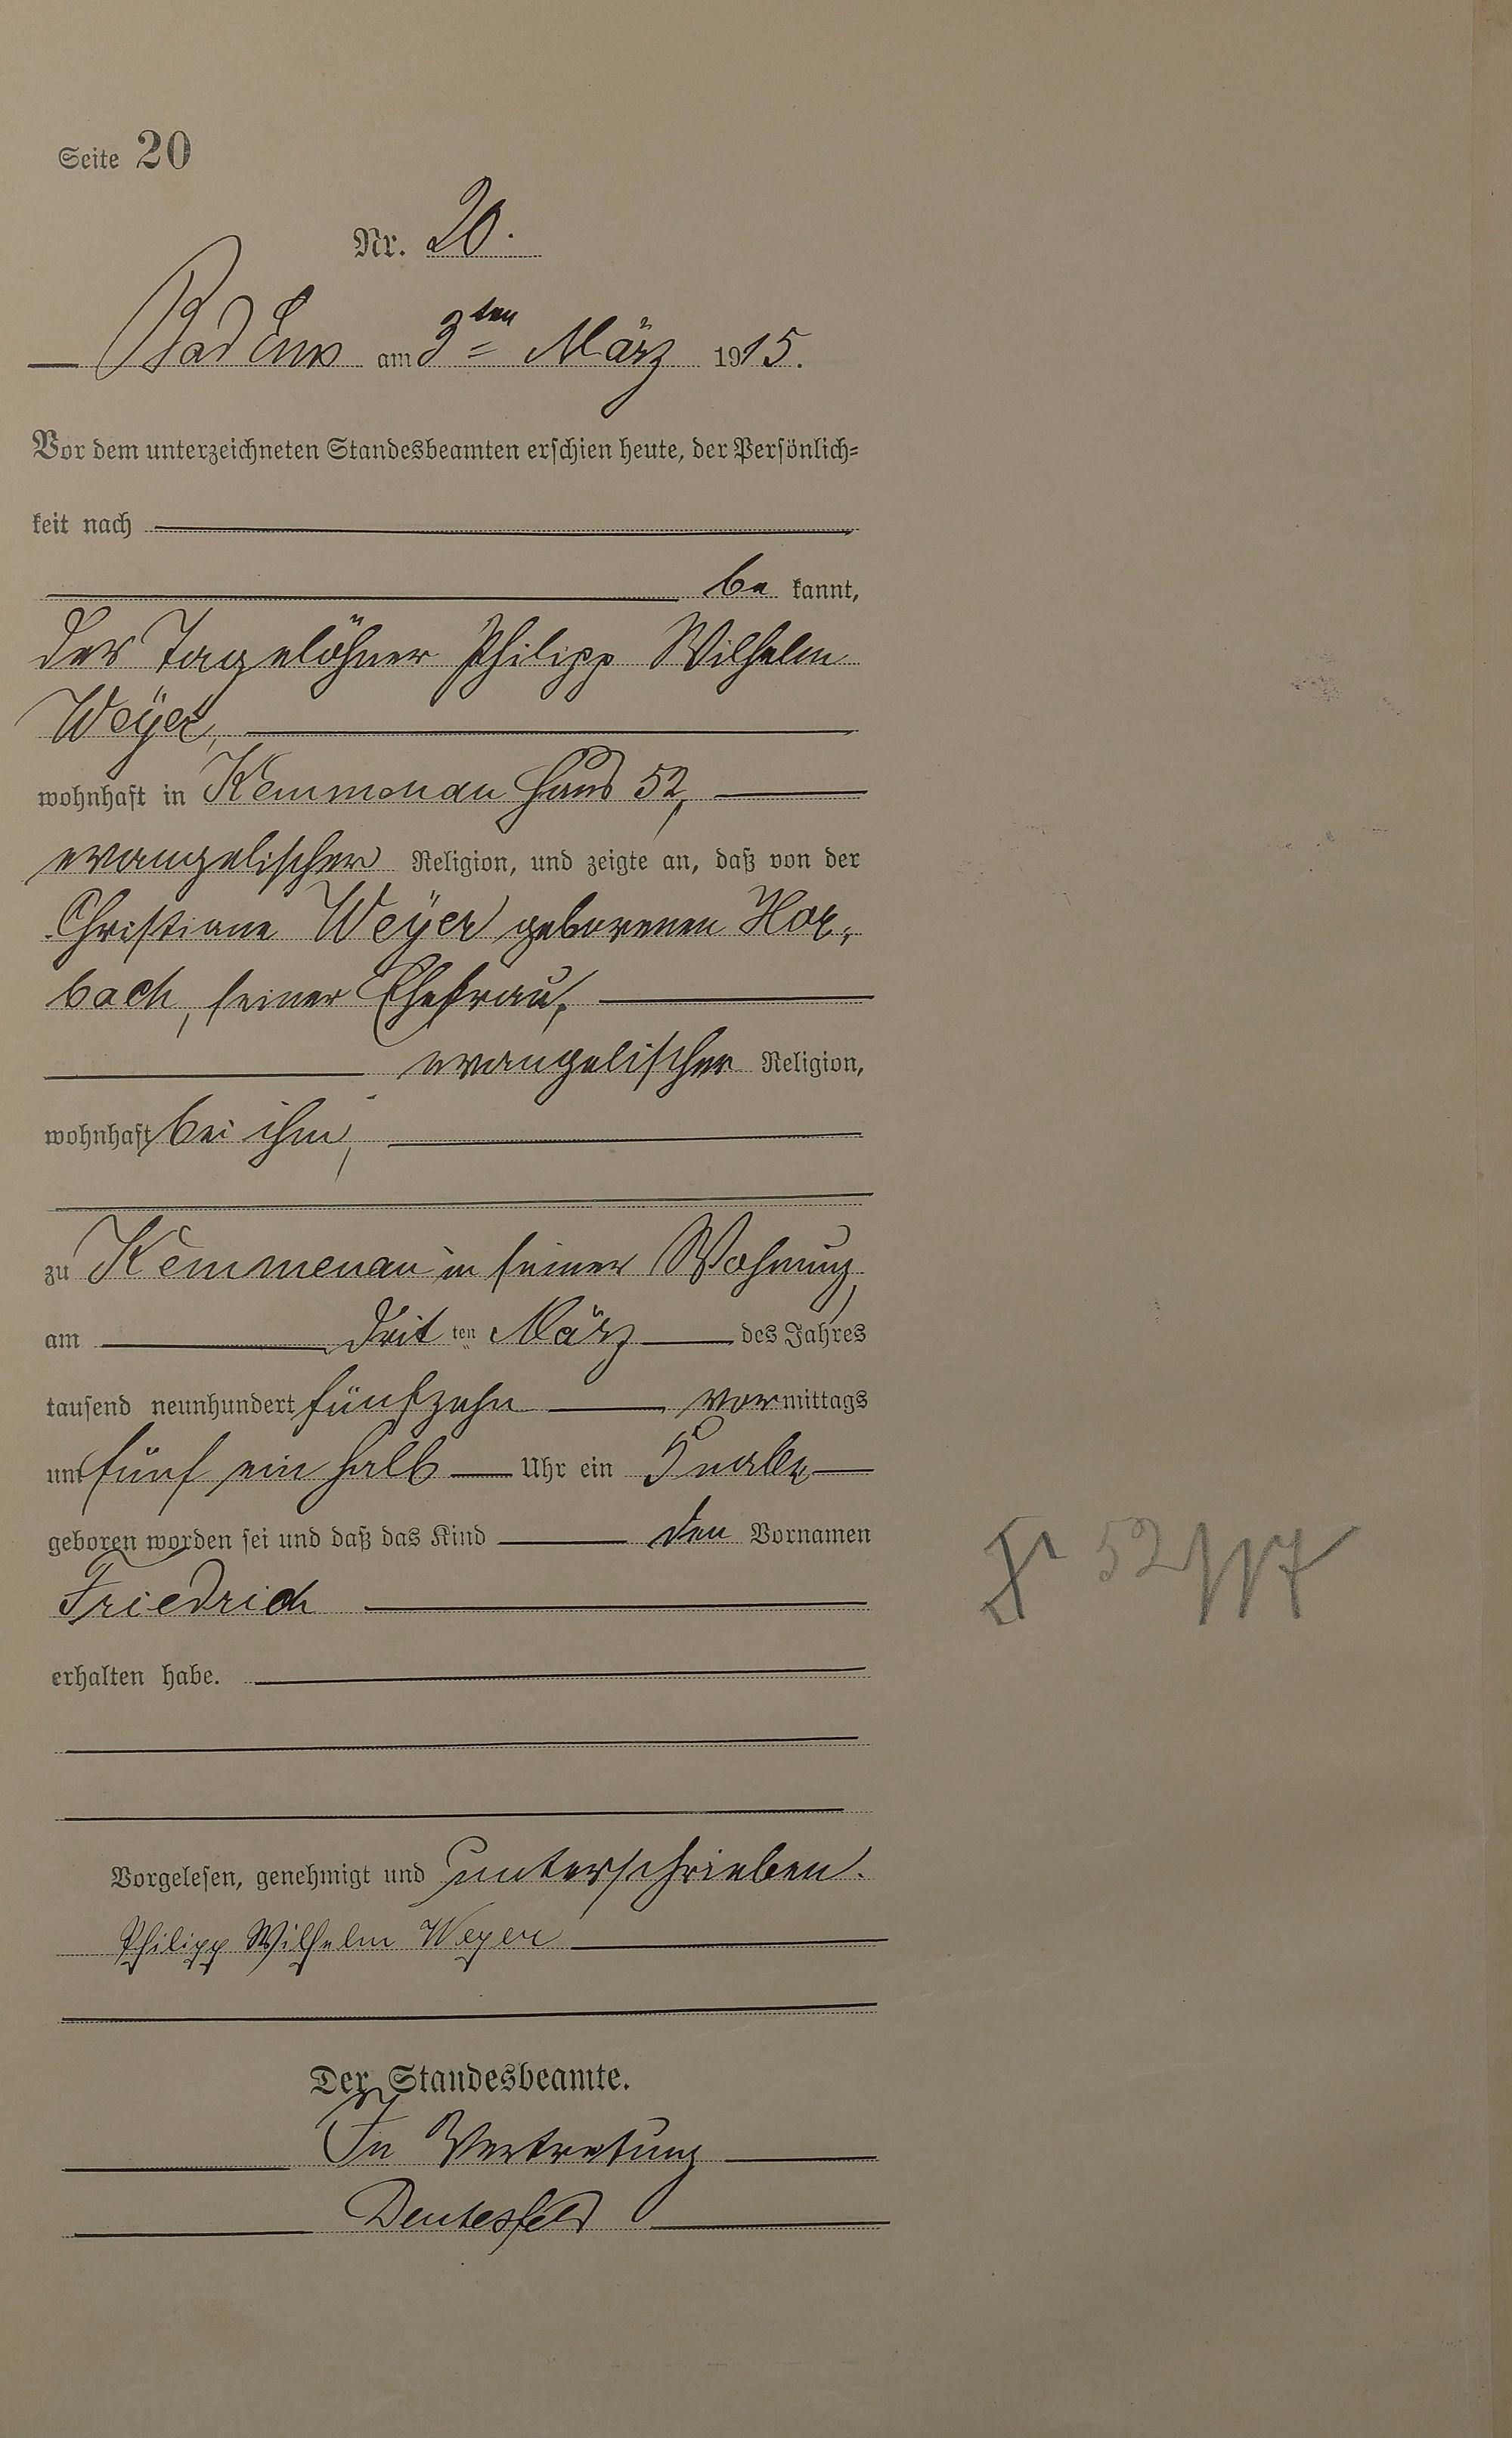 Seite 20
Nr. 20.
Bad Ems am 3ten März 1915.
Vor dem unterzeichneten Standesbeamten erschien heute, der Persönlich=
keit nach
be kannt,
der Tagelöhner Philipp Wilhelm
Weÿer,
wohnhaft in Kemmenau Haus 52,
evangelischer Religion, und zeigte an, daß von der
Christiane Weÿer geborenen Hor-
bach, seiner Ehefrau,
evangelischer Religion,
wohnhaft bei ihm,
zu Kemmenau in seiner Wohnung,
am dritten März des Jahres
tausend neunhundert fünfzehn vormittags
um fünf ein halb Uhr ein Knabe
geboren worden sei und daß das Kind den Vornamen
Friedrich
erhalten habe.
Vorgelesen, genehmigt und unterschrieben.
Philipp Wilhelm Weyer
Der Standesbeamte.
In Vertretung
Deutesfeld